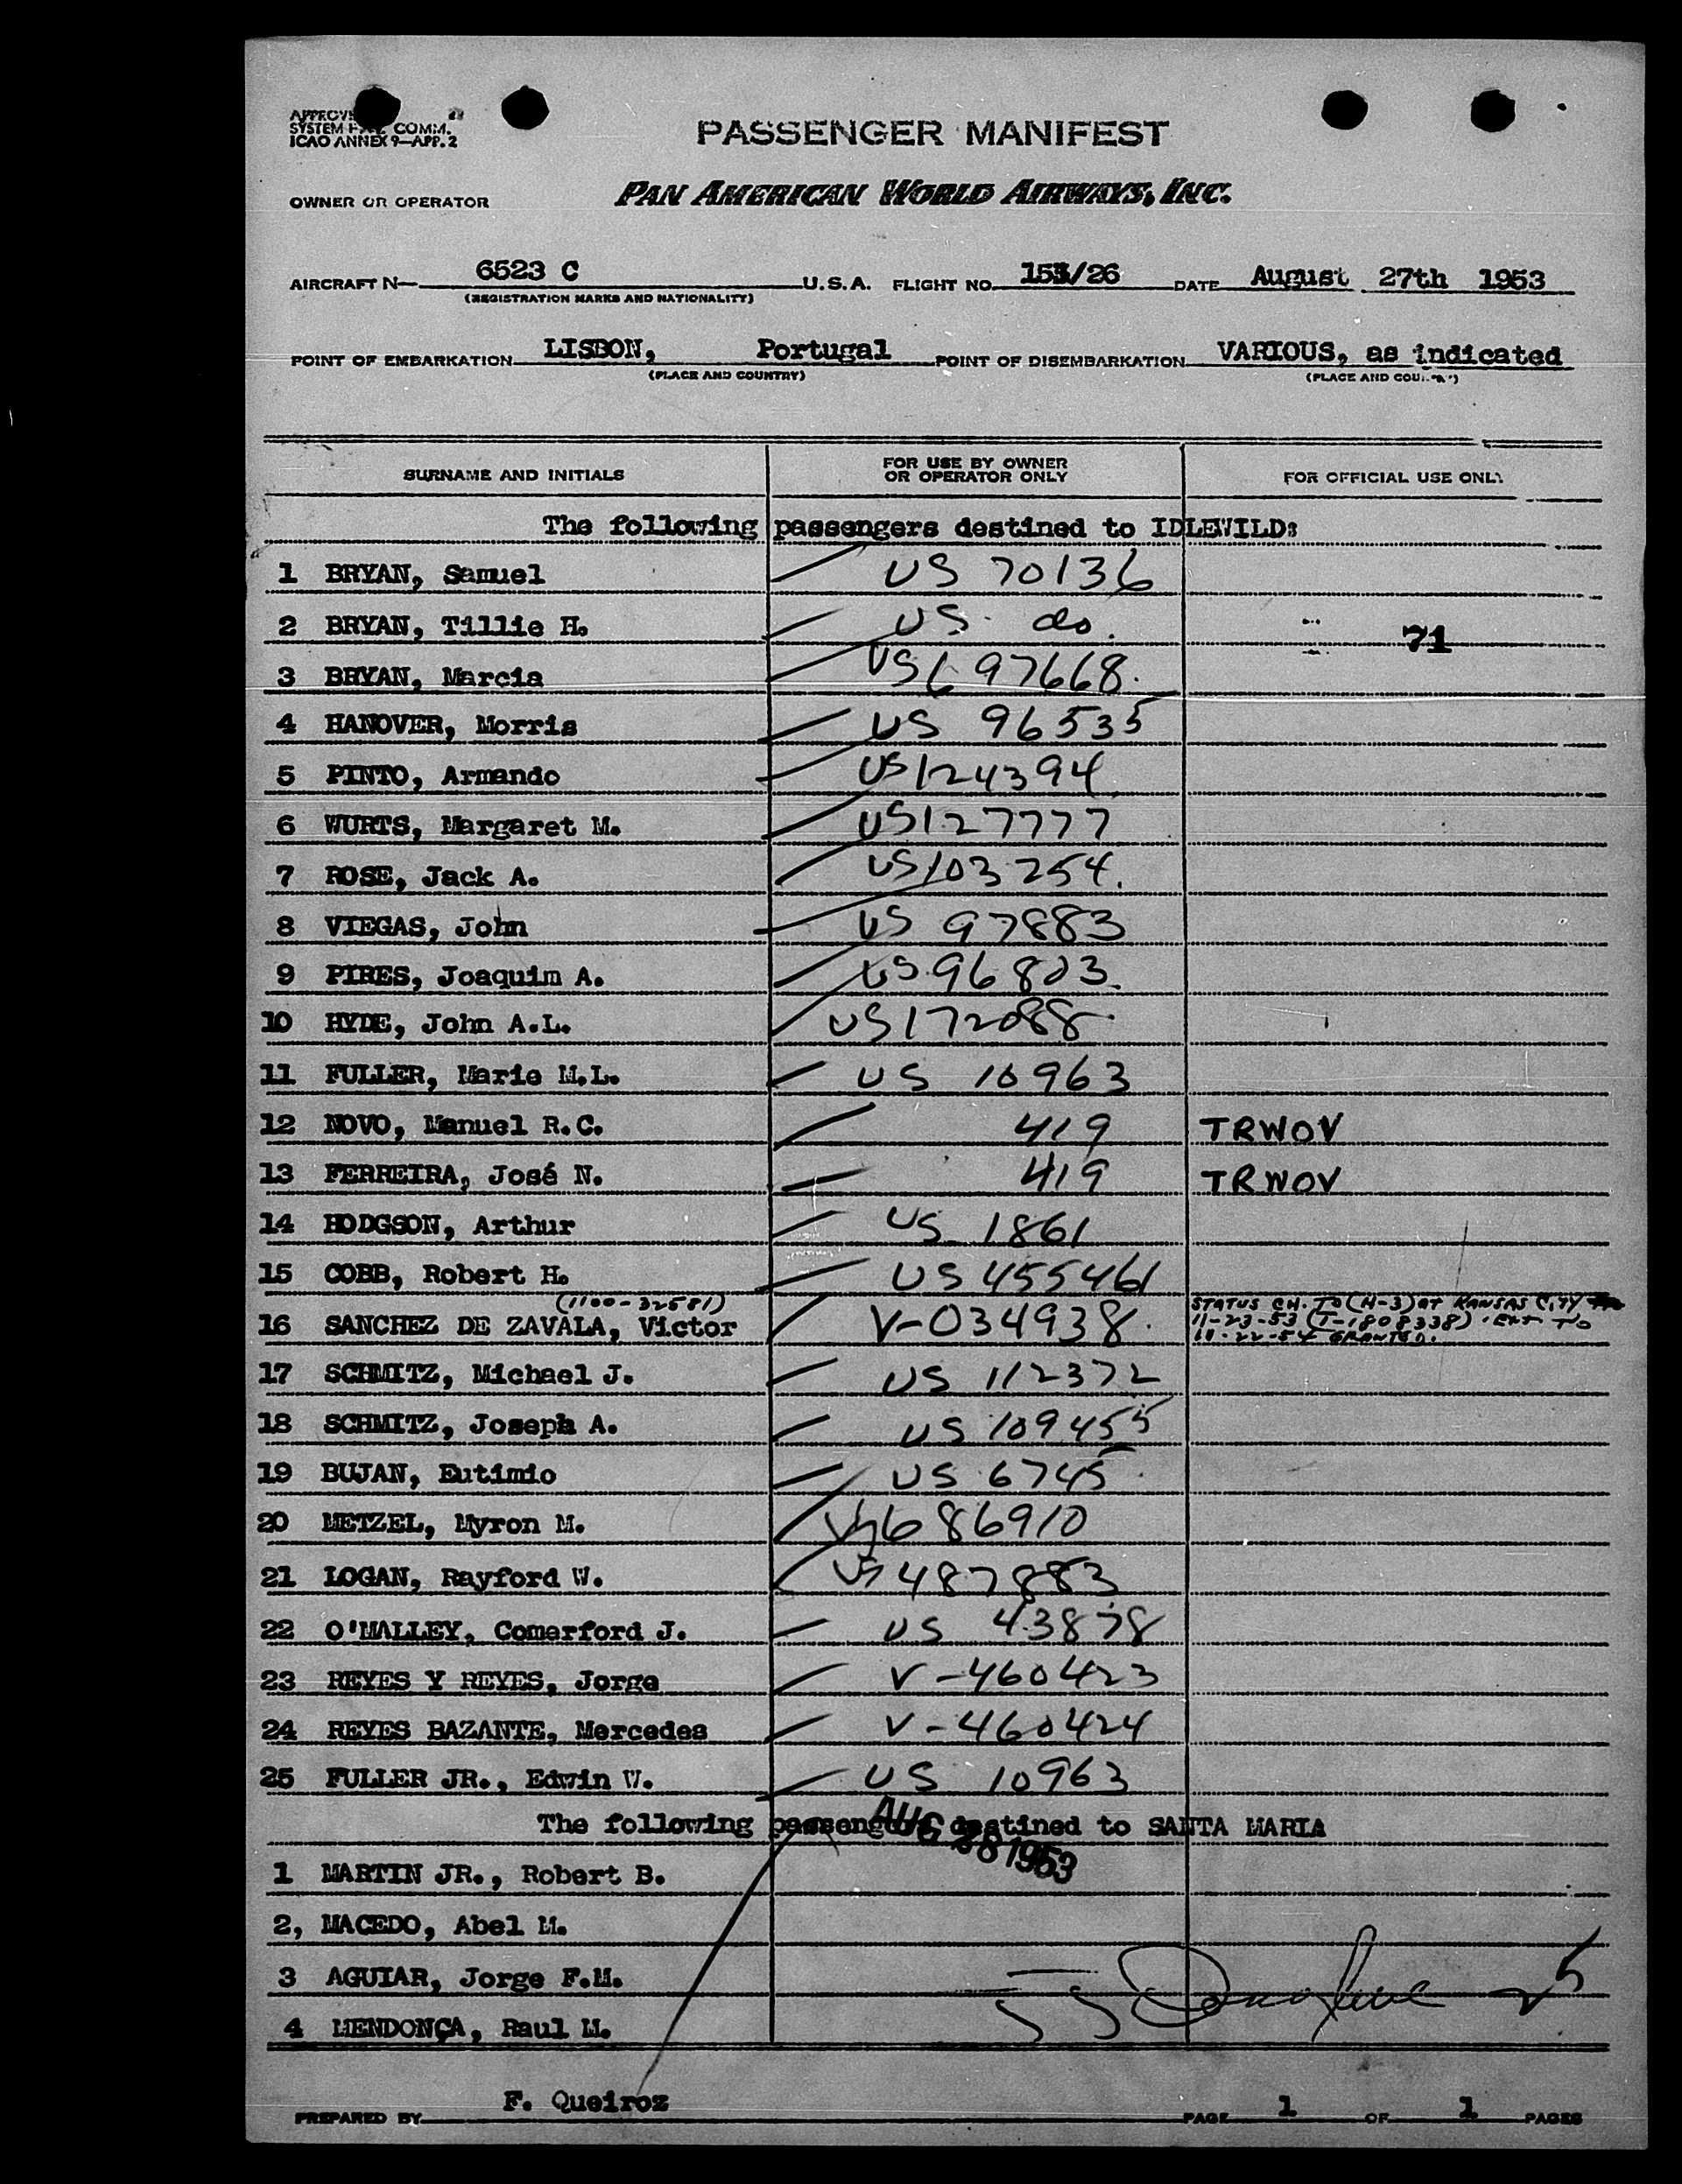 SYSTEM COMM.
ICAO ANNEX 9—APP. 2
PASSENGER MANIFEST
OWNER OR OPERATOR PAN AMERICAN WORLD AIRWAYS, INC.
AIRCRAFT N— 6523 C U.S.A. FLIGHT NO. 151/26 DATE August 27th 1953
(REGISTRATION MARKS AND NATIONALITY)
POINT OF EMBARKATION LISBON, Portugal POINT OF DISEMBARKATION VARIOUS, as indicated
(PLACE AND COUNTRY) (PLACE AND COUNTRY)
SURNAME AND INITIALS FOR USE BY OWNER OR OPERATOR ONLY FOR OFFICIAL USE ONLY
The following passengers destined to IDLEWILD:
1 BRYAN, Samuel US 70136
2 BRYAN, Tillie H. US. do. 71
3 BRYAN, Marcia US 697668.
4 HANOVER, Morris US 96535
5 PINTO, Armando US 124394
6 WURTS, Margaret M. US 127777
7 ROSE, Jack A. US 103254.
8 VIEGAS, John US 97883
9 PIRES, Joaquim A. US 96803.
10 HYDE, John A.L. US 172088
11 FULLER, Marie M.L. US 10963
12 NOVO, Manuel R.C. 419 TRWOV
13 FERREIRA, José N. 419 TRWOV
14 HODGSON, Arthur US 1861
15 COBB, Robert H. US 455461
(1100-32581) STATUS CH. TO (H-3) AT KANSAS CITY
16 SANCHEZ DE ZAVALA, Victor V-034938. 11-23-53 (T-1808338). EXT TO
11-22-54 GRANTED.
17 SCHMITZ, Michael J. US 112372
18 SCHMITZ, Joseph A. US 109455
19 BUJAN, Eutimio US 6745
20 METZEL, Myron M. US 686910
21 LOGAN, Rayford W. US 487883
22 O'MALLEY, Comerford J. US 43878
23 REYES Y REYES, Jorge V-460423
24 REYES BAZANTE, Mercedes V-460424
25 FULLER JR., Edwin W. US 10963
The following passengers destined to SANTA MARIA
AUG 28 1953
1 MARTIN JR., Robert B.
2, MACEDO, Abel M.
3 AGUIAR, Jorge F.M. 25
4 MENDONÇA, Raul M.
PREPARED BY F. Queiroz PAGE 1 OF 1 PAGES